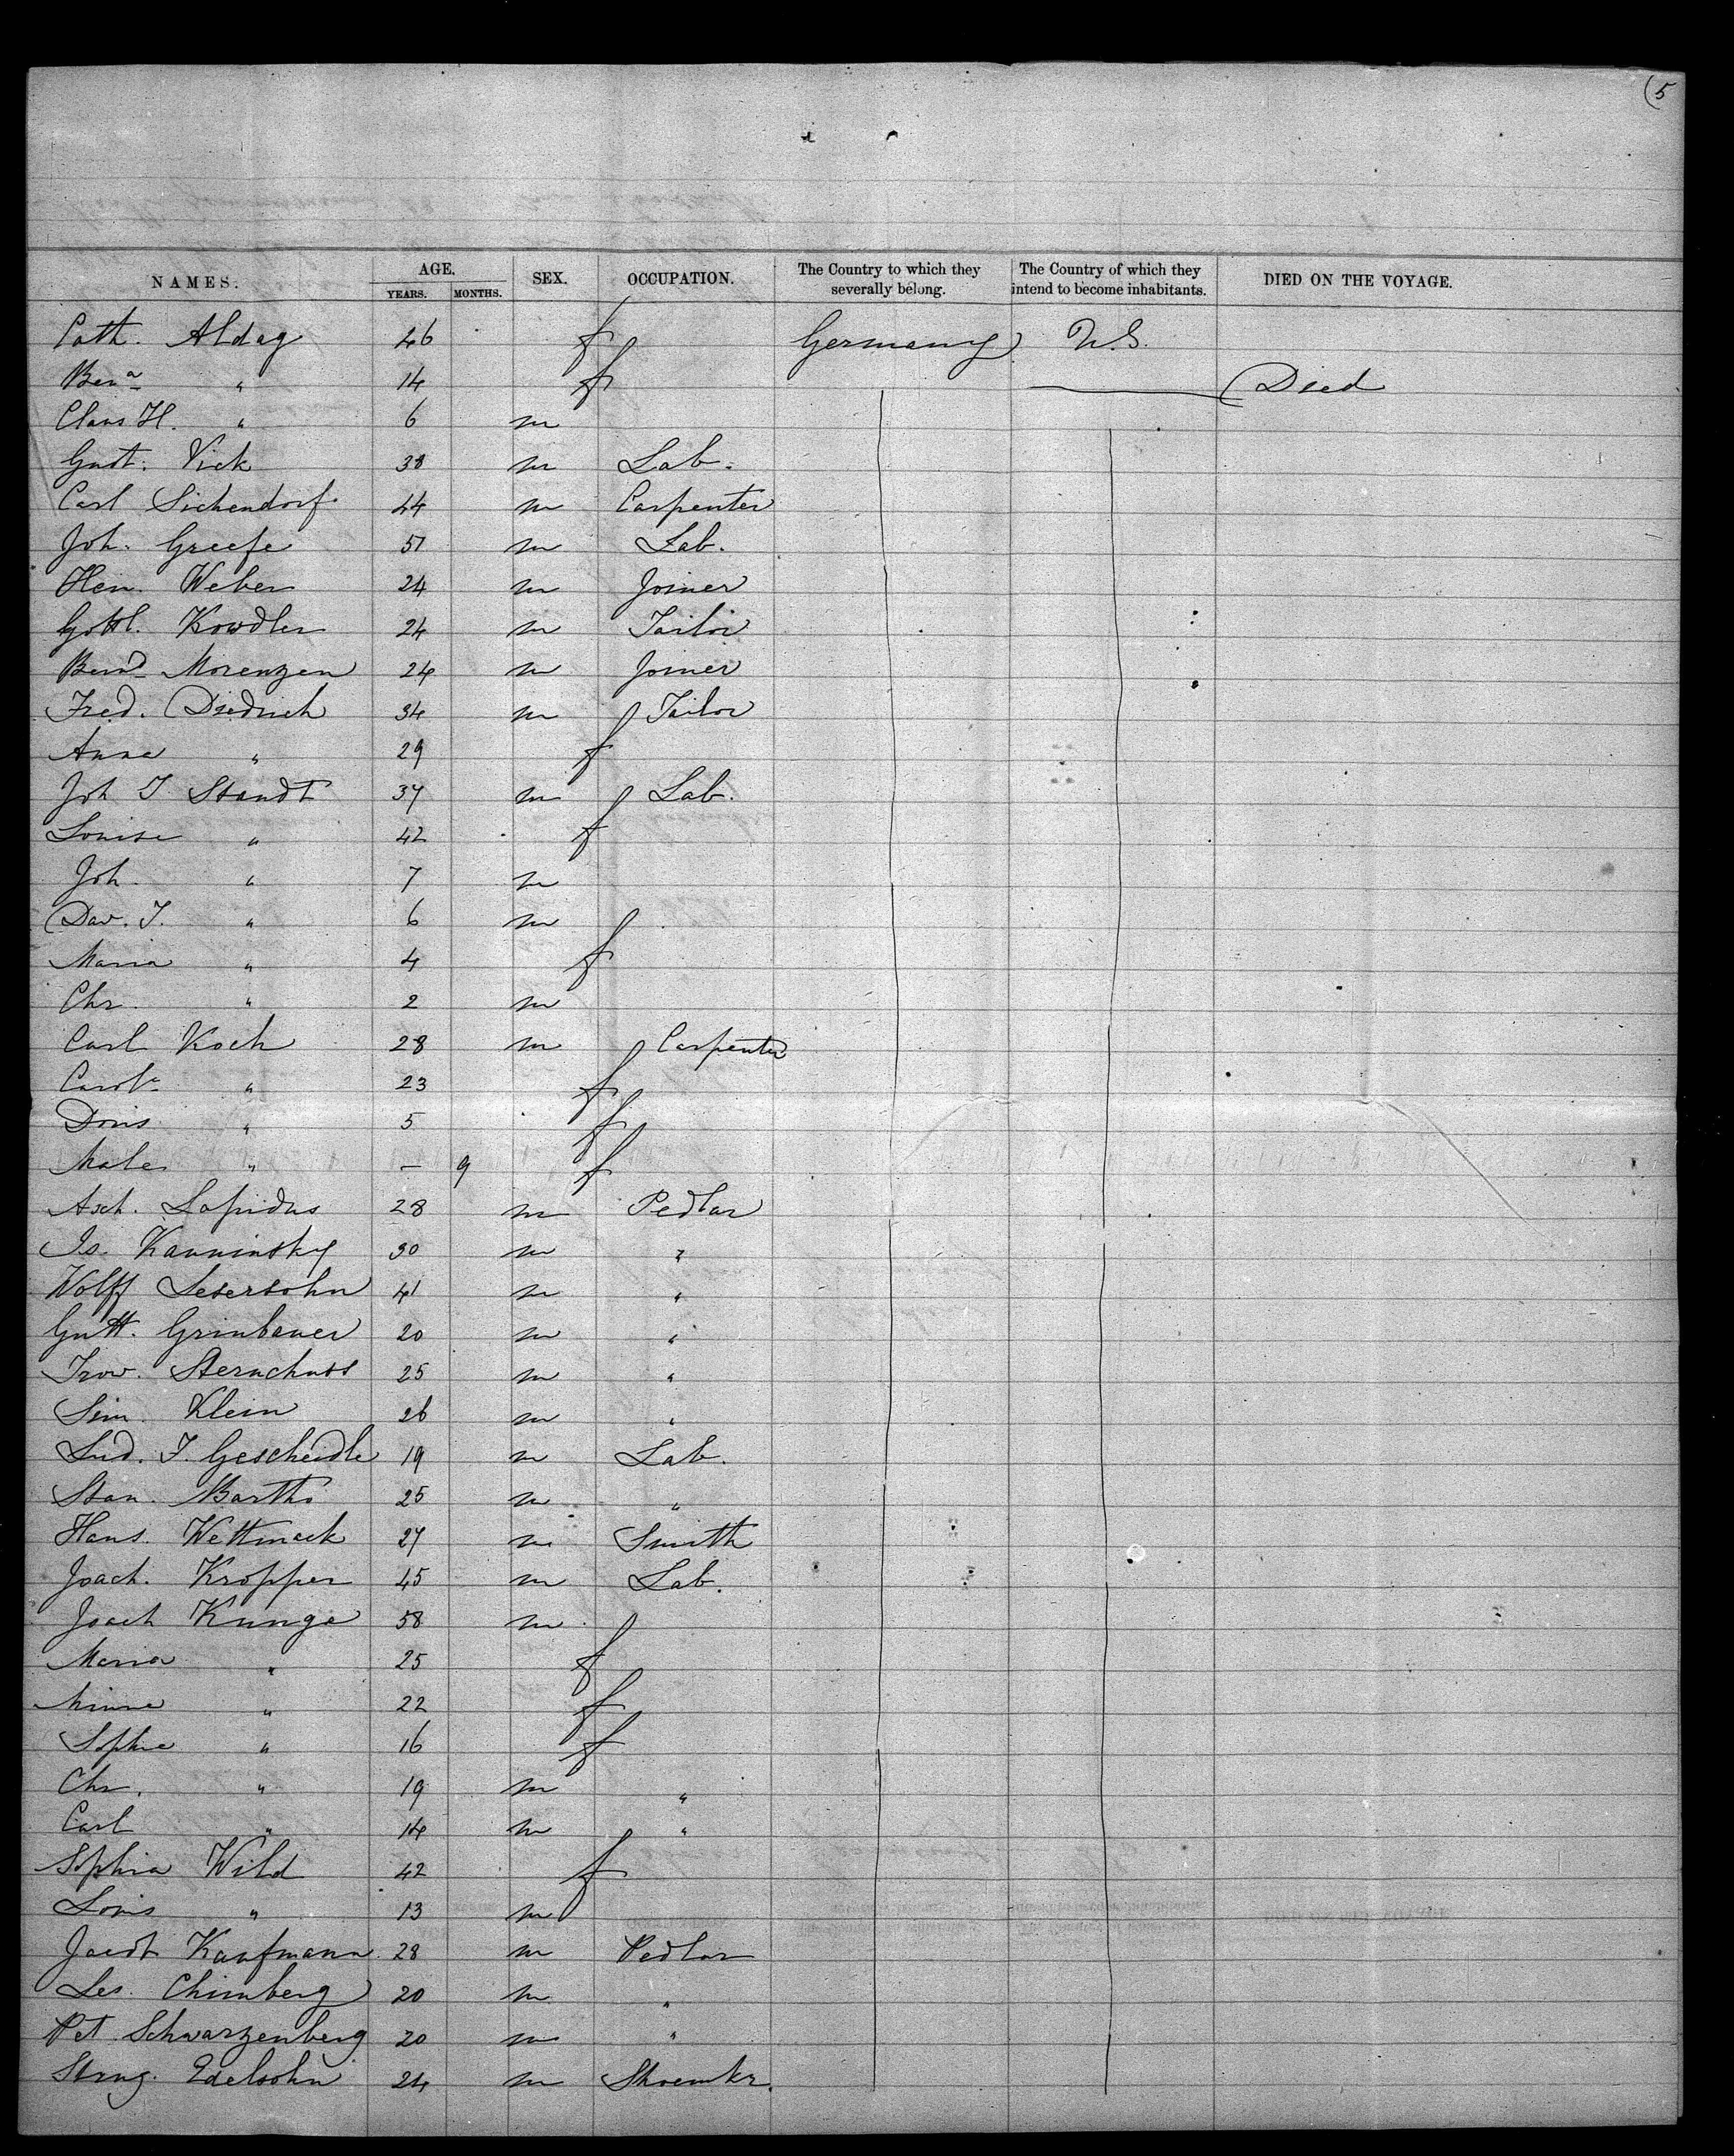 (5
NAMES. AGE. SEX. OCCUPATION. The Country to which they severally belong. The Country of which they intend to become inhabitants. DIED ON THE VOYAGE.
YEARS. MONTHS.
Cath. Aldag 46 f Germany U.S.
Ber.a " 14 f Died
Claus H. " 6 m
Gust. Vick 38 m Lab.
Carl Sichendorf 44 m Carpenter
Joh. Greefe 51 m Lab.
Hein. Weber 24 m Joiner
Gottl. Kowdler 24 m Tailor
Bernd Morenzen 24 m Joiner
Fred. Diedrich 34 m Tailor
Anna " 29 f
Joh J Standt 37 m Lab.
Louise " 42 f
Joh. " 7 m
Dav. J. " 6 m
Maria " 4 f
Chr. " 2 m
Carl Koch 28 m Carpenter
Carole " 23 f
Doris " 5 f
Male " — 9 f
Asch. Lapidus 28 m Pedlar
Is. Kanninsky 30 m "
Wolff Lesersohn 41 m "
Gutt. Grinbauer 20 m "
25 m "
Sim. Klein 26 m "
Lud. J. Gescheidle 19 m Lab.
Stan. Barths 25 m "
Hans. Wettmack 27 m Smith
Joach. Kropper 45 m Lab.
Joach Kunge 58 m
Maria " 25 f
Minna " 22 f
Sophie " 16 f
Chr. " 19 m "
Carl " 14 m "
Sophia Wild 42 f
Louis " 13 m
Kaufmann 28 m Pedlar
Les. Chimberg 20 m "
Pet. Schwarzenberg 20 m "
Edelsohn 24 m Shoemkr.